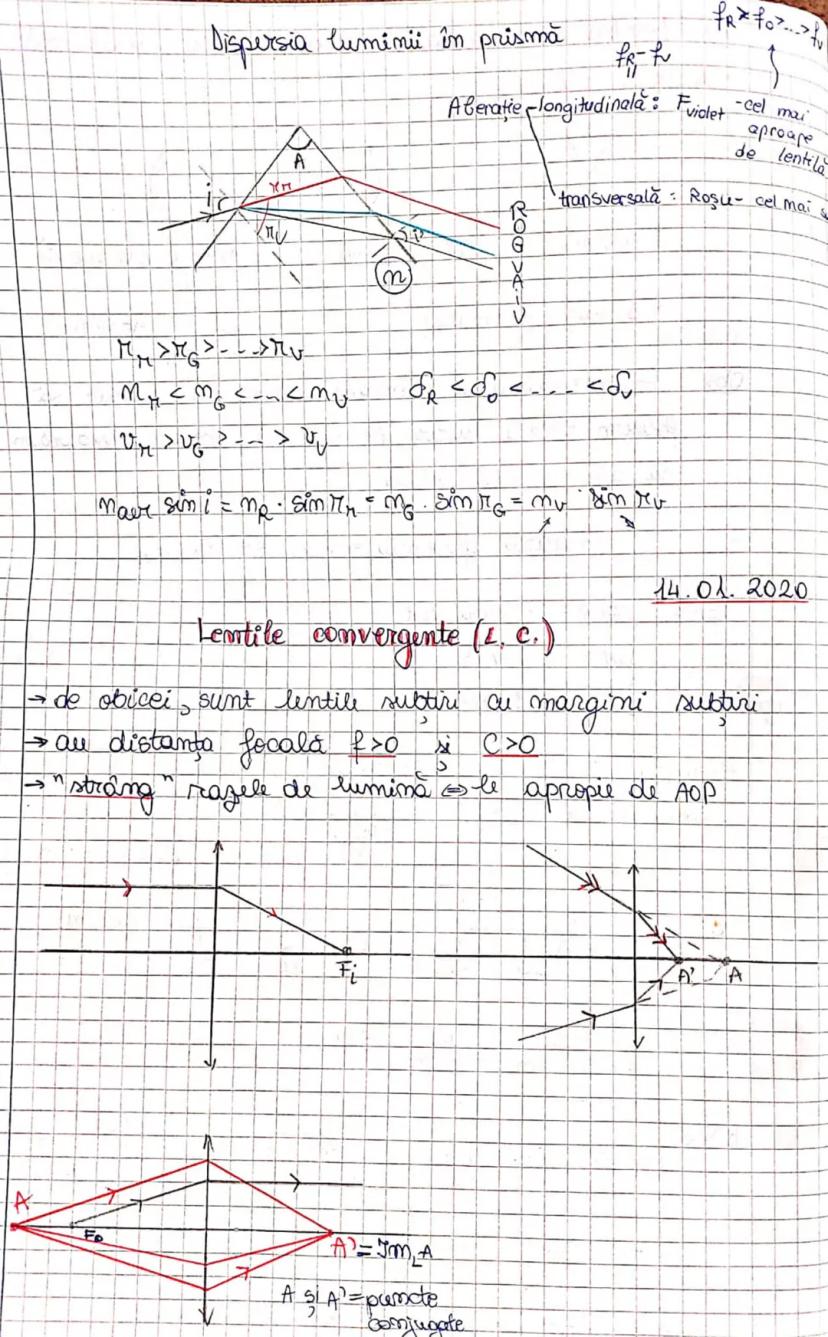 Dispersia luminii în prismă
f_R > f_O > ... > f_V
f_R - f_V
Aberație longitudinală: F violet - cel mai
aproape
de lentilă
transversală: Roșu - cel mai
A
i
r_r
r_V
n
R
O
G
V
A
I
V
r_r > r_G > ... > r_V
n_r < n_G < ... < n_V δ_R < δ_O < .... < δ_V
v_r > v_G > ... > v_V
n aer sin i = n_R · sin r_r = n_G · sin r_G = n_V · sin r_V
14.01.2020
Lentile convergente (L.C.)
→ de obicei, sunt lentile subțiri cu margimi subțiri
→ au distanța focală f>0 și C>0
→ "strâng" razele de lumină ⇔ le apropie de AOP
F_i
A' A
A
F_o
A' = Im_L A
A și A' = puncte
conjugate